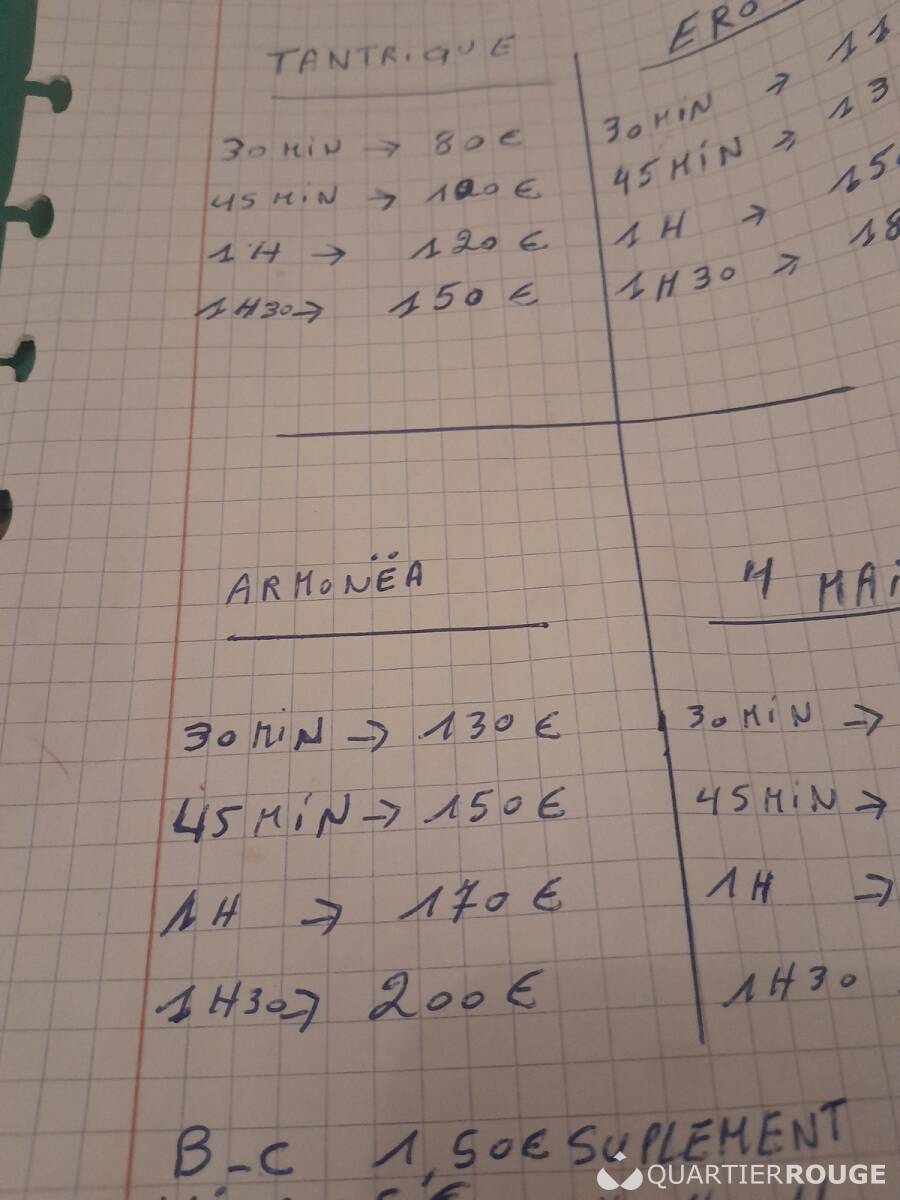 TANTRIQUE
30 MiN → 80 €
45 MiN → 100 €
1 H → 120 €
1H30 → 150 €
ERO
30 MiN → 11
45 MiN → 13
1 H → 15
1H30 → 18
ARMONËA
30 MiN → 130 €
45 MiN → 150 €
1 H → 170 €
1H30 → 200 €
4 MAi
30 MiN →
45 MiN →
1 H →
1H30
B-C 1,50€ SUPLEMENT
QUARTIERROUGE